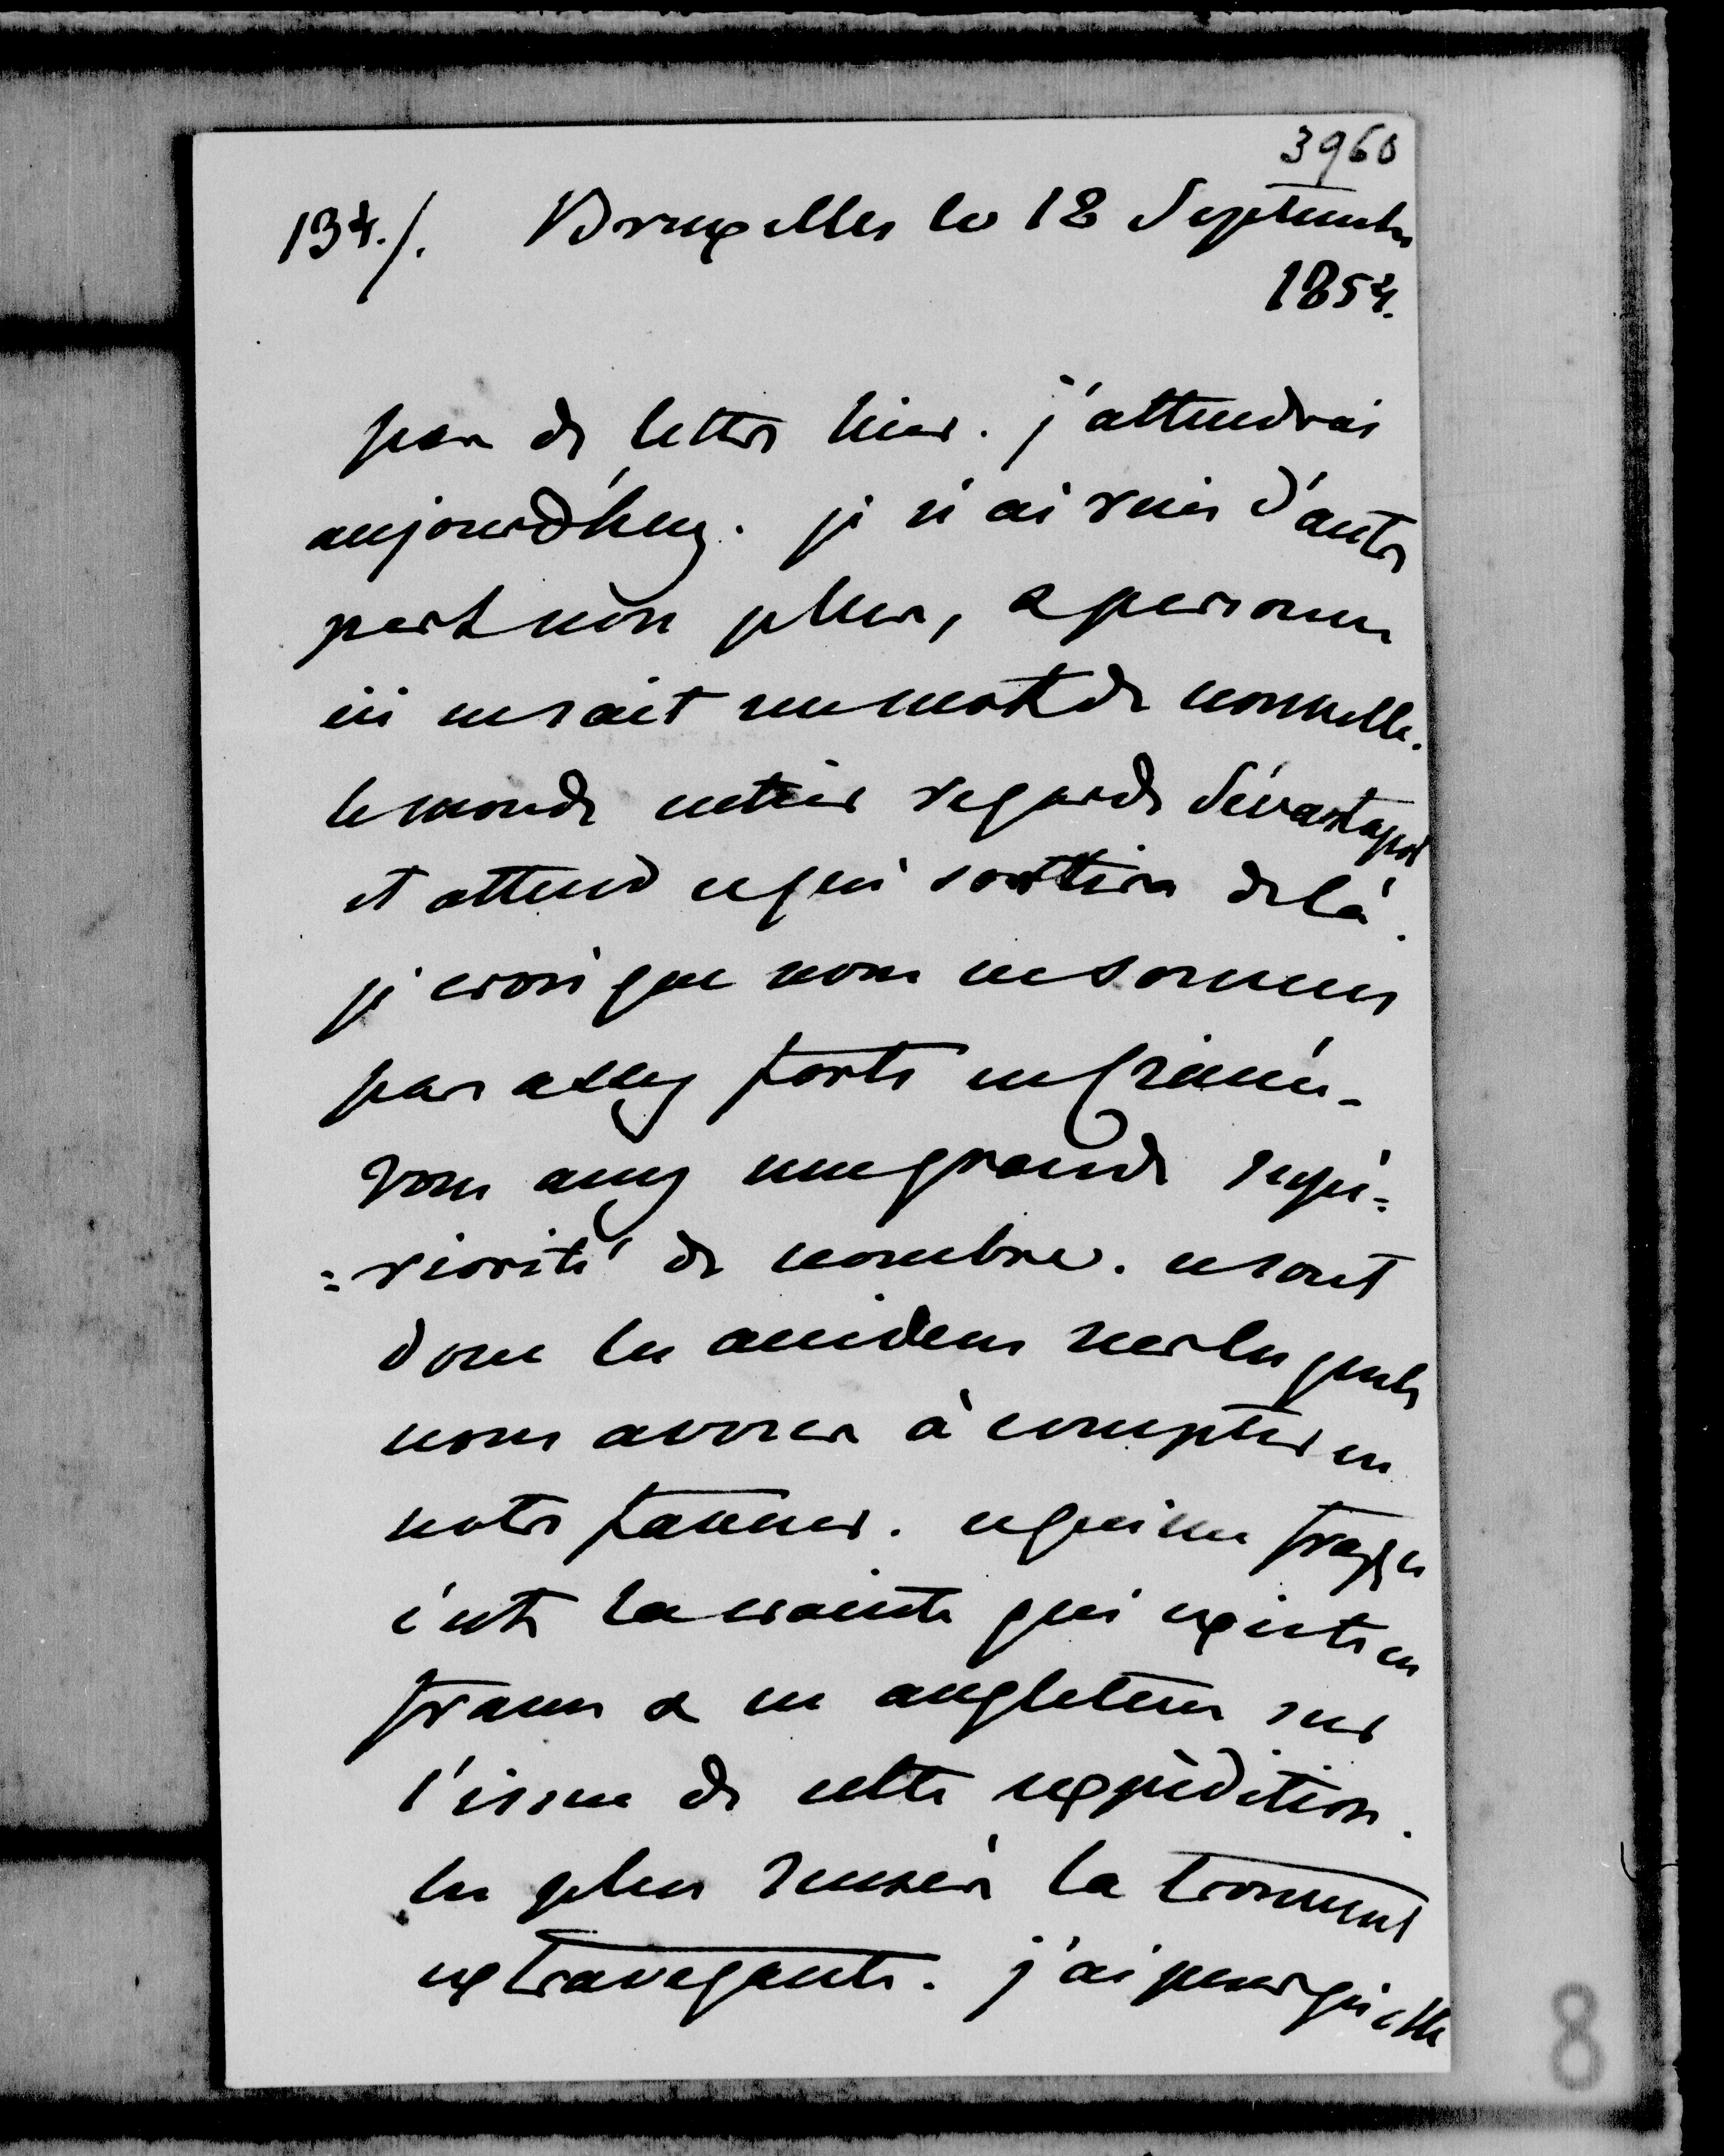 3960
134./. Bruxelles le 18 Septembre
1854.
pas de lettre hier. j'attendrai
aujourd'huy. je n'ai rien d'autre
part non plus, & personne
ici ne sait un mot de nouvelle.
le monde entier regarde Sévastopol
et attend ce qui sortira de là.
je crois que nous ne sommes
pas assez forts en Crimée.
vous avez une grande supé=
=riorité de nombre. ce sont
donc les accidens sur lesquels
nous avons à compter en
notre faveur. ce qui me frappe
c'est la crainte qui existe en
france & en angleterre sur
l'issue de cette expédition.
les plus sensés la trouvent
extravagante. j'ai peur qu'elle
8